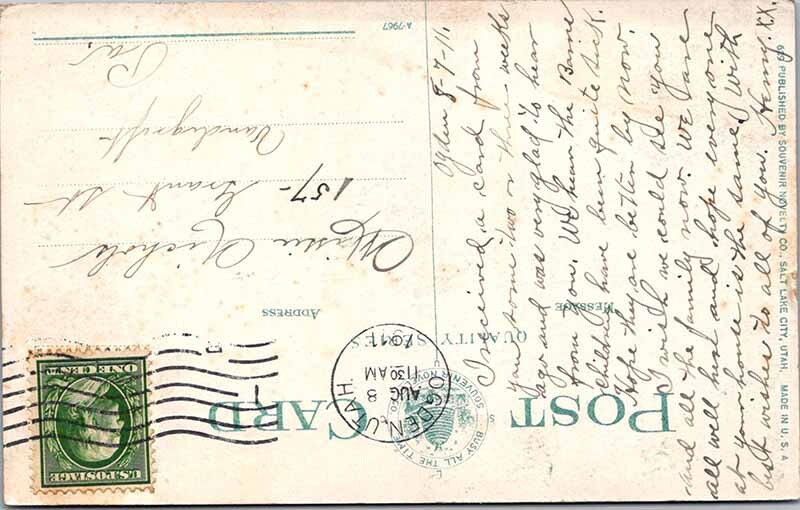 POST CARD
BUSY ALL THE TIME
SOUVENIR NOV
QUALITY SERIES
MESSAGE
ADDRESS
OGDEN, UTAH
AUG 8
1130 AM
1911
U.S. POSTAGE
ONE CENT
Ogden 8-7-11.
I received a card from
you some two or three weeks
ago and was very glad to hear
from you. We hear the
Children have been quite sick.
Hope they are better by now.
I wish we could see you
and all the family now. We are
all well here and hope everyone
at your house is the same. With
best wishes to all of you. Henry. XX.
Nichols
157- Grant St
Vandergrift
Pa.
A-7967
659 PUBLISHED BY SOUVENIR NOVELTY CO., SALT LAKE CITY, UTAH. MADE IN U.S.A